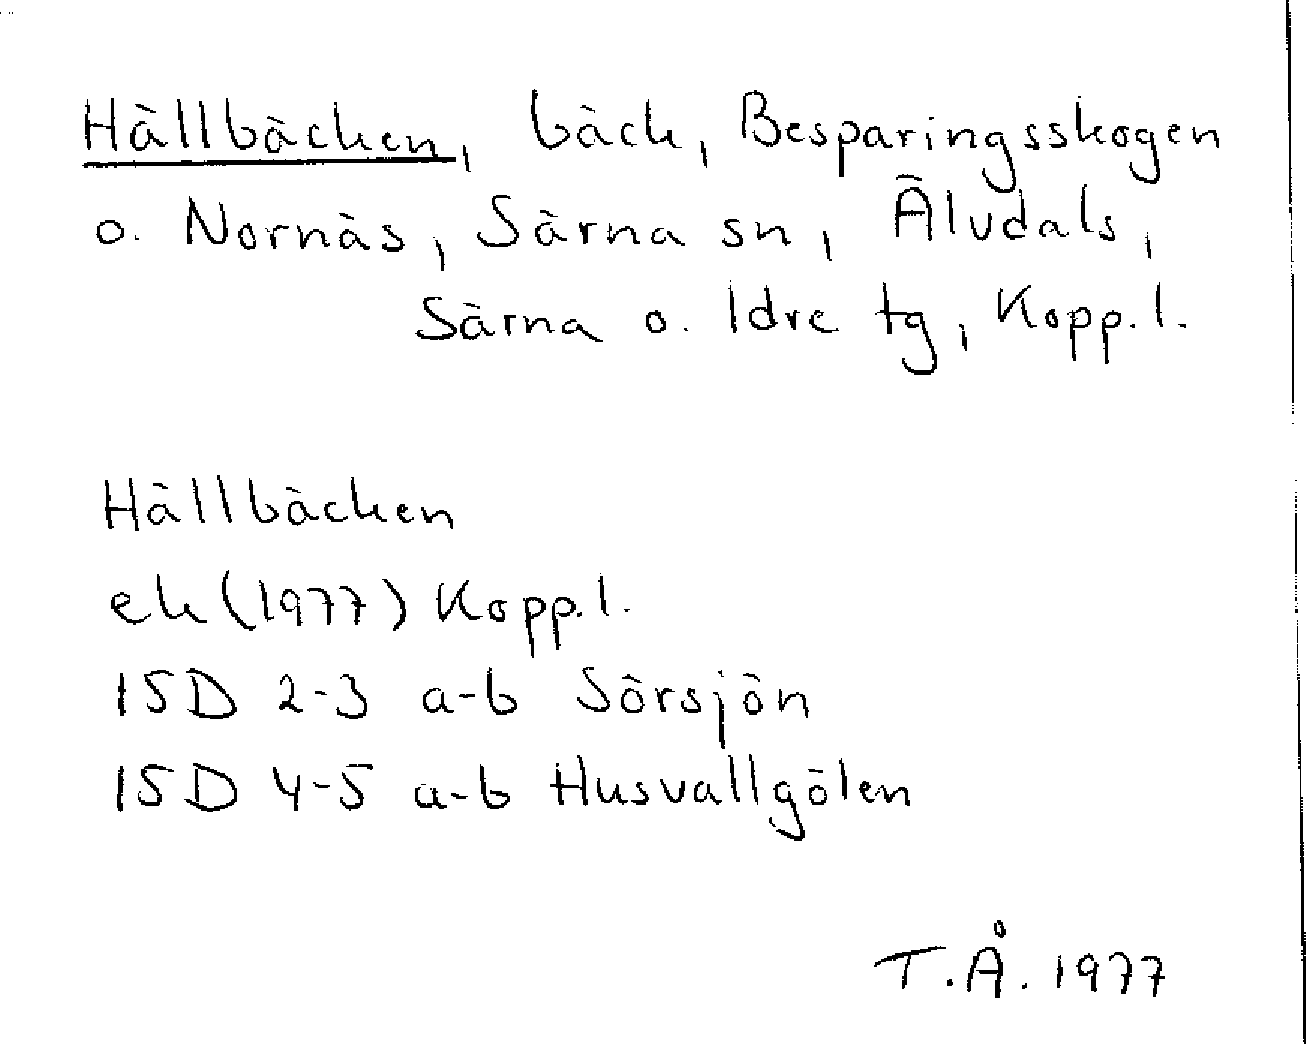 Hällbäcken, bäck, Besparingsskogen
o. Nornäs, Särna sn, Älvdals,
Särna o. Idre tg, Kopp.l.
Hällbäcken
ek (1977) Kopp.l.
15D 2-3 a-b Sörsjön
15D 4-5 a-b Husvallgölen
T.Å. 1977